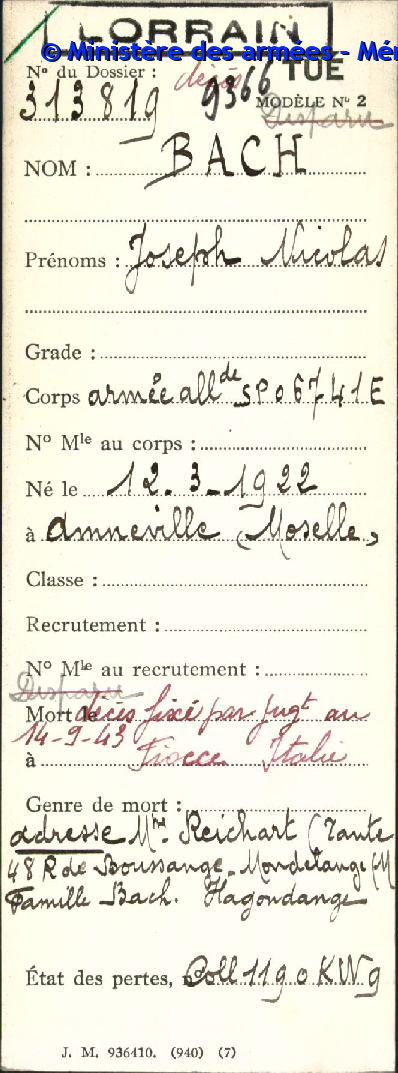 LORRAIN
© Ministère des armées - Mém
N° du Dossier : décès 9366 TUÉ
313819 MODÈLE N° 2
Disparu
NOM : BACH
Prénoms : Joseph Nicolas
Grade :
Corps armée all de SP 06741E
N° Mle au corps :
Né le 12-3-1922
à Amneville (Moselle)
Classe :
Recrutement :
N° Mle au recrutement :
Disparu
Mort le décès fixé par jugt au
14-9-43
à Fiocce Italie
Genre de mort :
adresse Mme Reichart (Tante
48 R de Boussange - Mondelange (M
Famille Bach. Hagondange
État des pertes, n° Coll 1190 KW9
J. M. 936410. (940) (7)